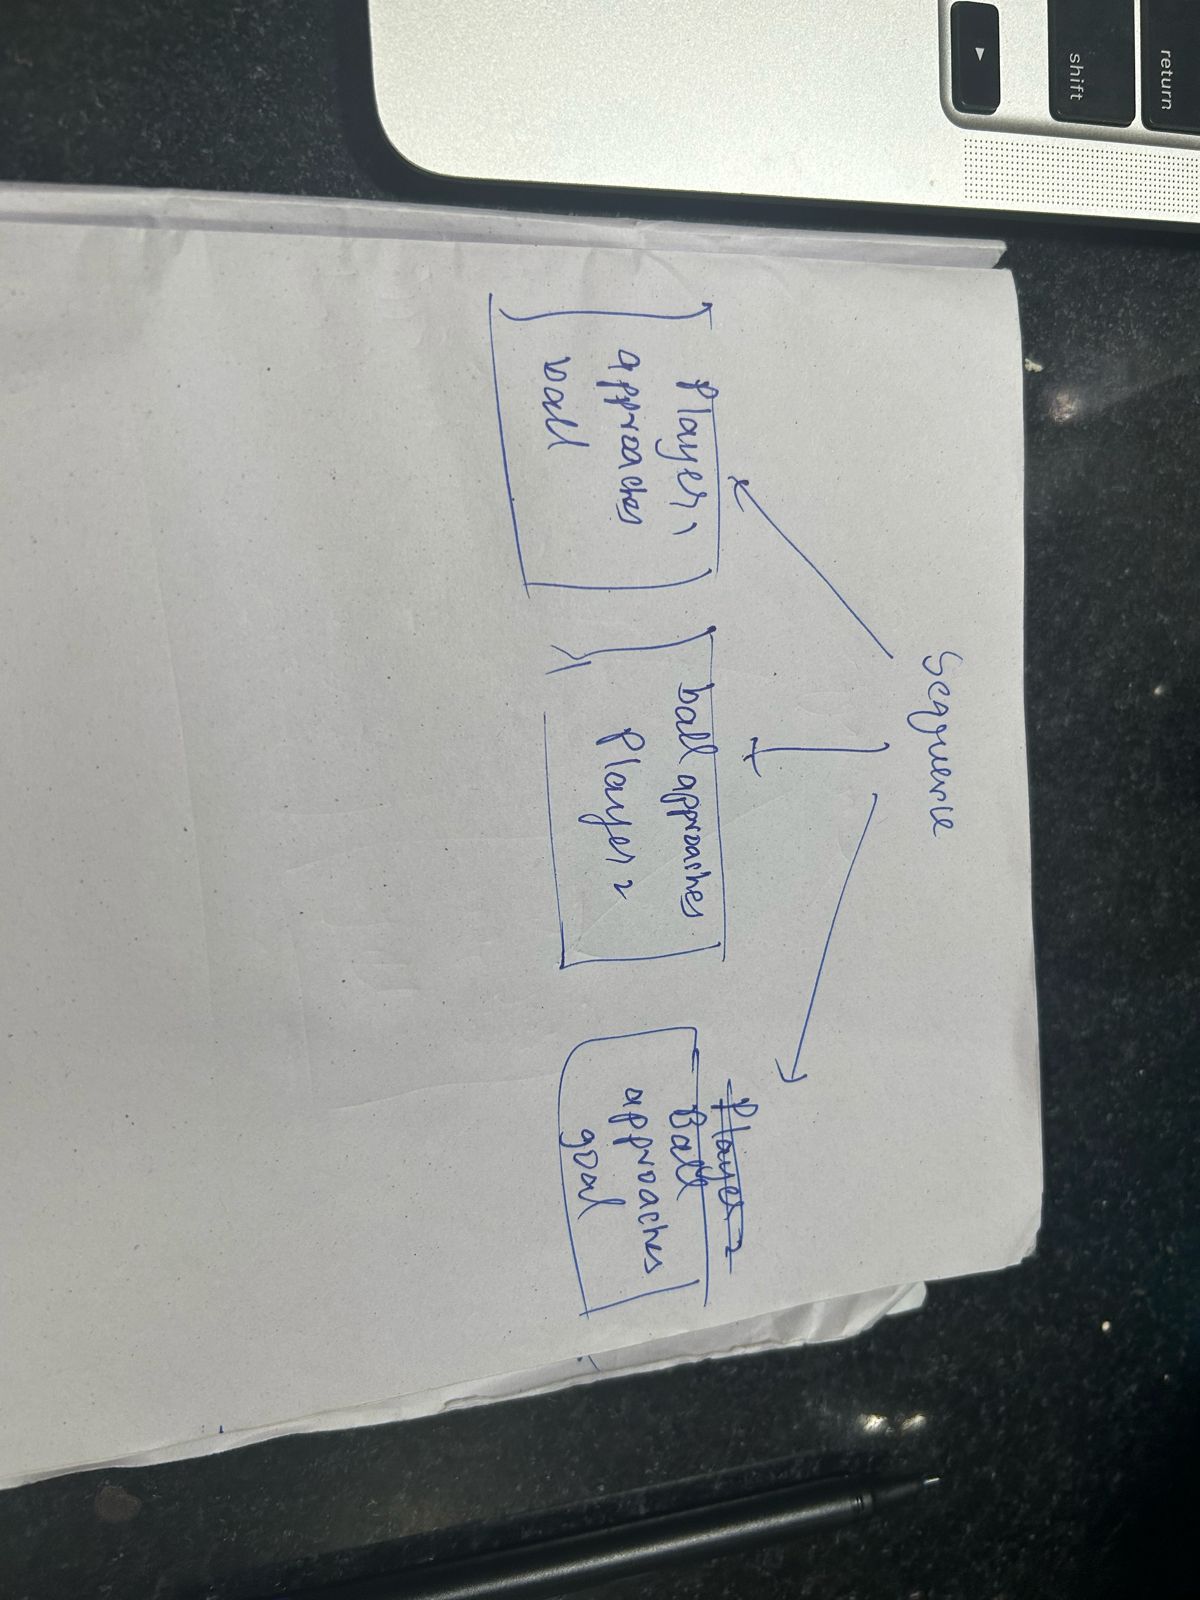 return
shift
Sequence
Player 1
approaches
ball
ball approaches
Player 2
Player 2
Ball
approaches
goal